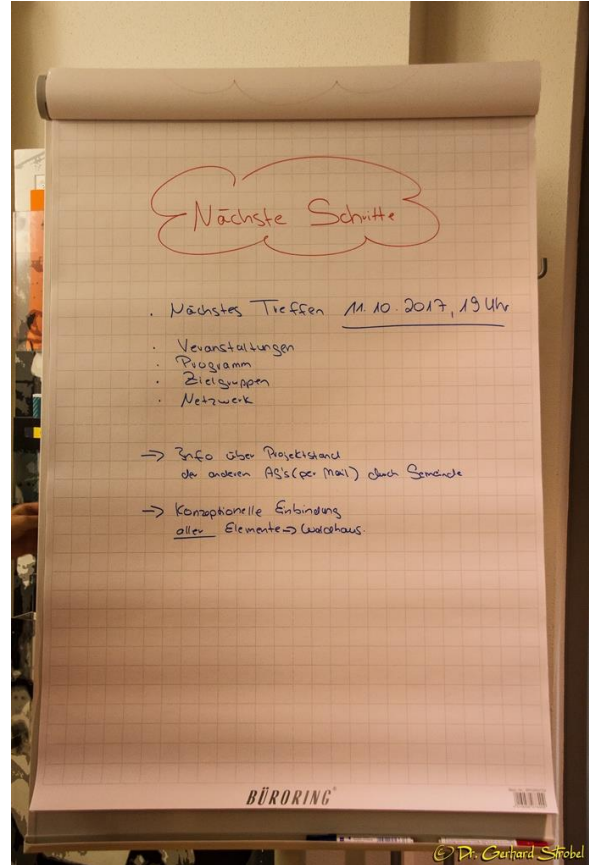 Nächste Schritte
· Nächstes Treffen 11.10.2017, 19 Uhr
· Veranstaltungen
· Programm
· Zielgruppen
· Netzwerk
→ Info über Projektstand
der anderen AG's (per Mail) durch Gemeinde
→ Konzeptionelle Einbindung
aller Elemente → Waldhaus.
BÜRORING®
© Dr. Gerhard Strobel